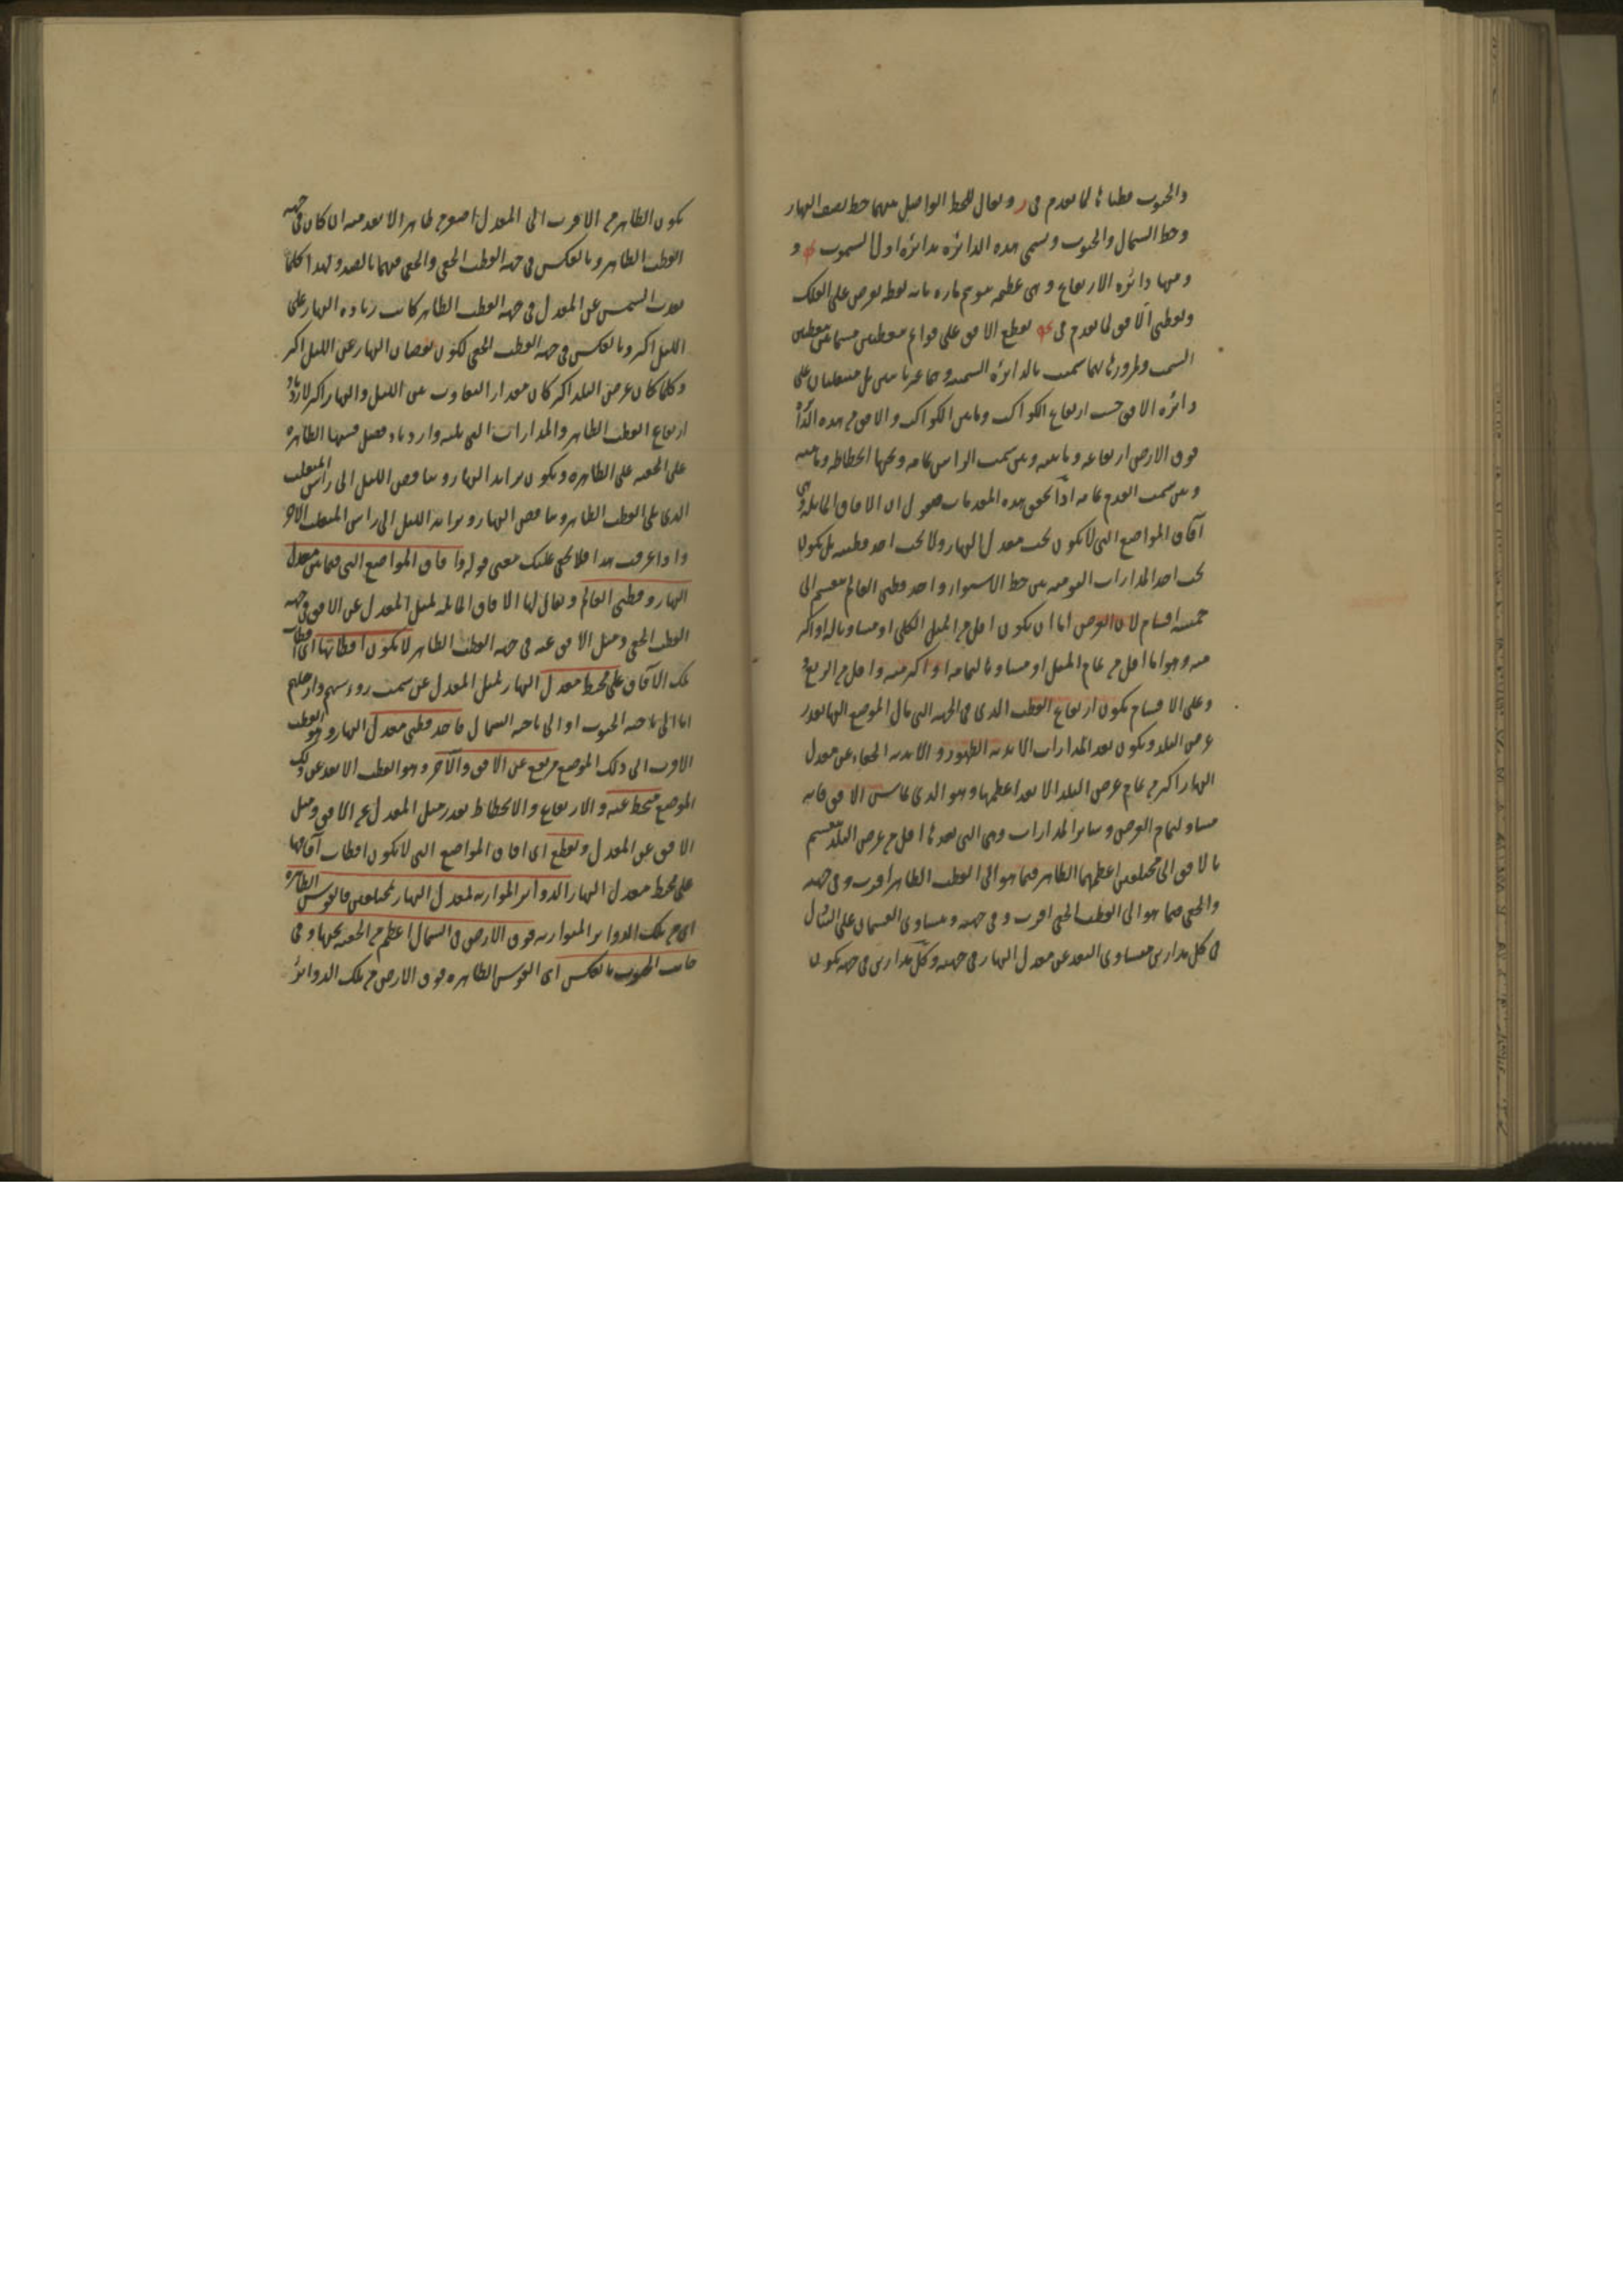 والجنوب قطباها لما تقدم فى ر ويقال للخط الواصل بينهما خط نصف النهار
وخط الشمال والجنوب وتسمى هذه الدائرة بدائرة اول السموت و
ومنها دائرة الارتفاع وهى عظيمة موهم مارة باية نقطة تفرض على الفلك
وبقطبى الافق لما تقدم فى تقطع الافق على قوائم بنقطتين مسماتين بنقطتى
السمت ولمرورها بهما سميت بالدائرة السمتية وهما غير ثابتتين بل منتقلتان على
دائرة الافق حسب ارتفاع الكواكب وما بين الكواكب والافق من هذه الدائرة
فوق الارض ارتفاعه وما بينه وبين سمت الراس تمامه وتحتها انحطاطه وما بينه
وبين سمت القدم تمامه اذا تحقق هذه المقدمات فنقول ان الافاق المائلة وهى
آفاق المواضع التى لا تكون تحت معدل النهار ولا تحت احد قطبيه بل تكون
تحت احد المدارات اليومية بين خط الاستواء واحد قطبى العالم تنقسم الى
خمسة اقسام لان العرض اما ان يكون اقل من الميل الكلى او مساويا له او اكثر
منه وهو اما اقل من تمام الميل او مساويا لتمامه او اكثر منه واقل من الربع
وعلى الاقسام يكون ارتفاع القطب الذى فى الجهة التى مال الموضع اليها بقدر
عرض البلد ويكون بعد المدارات الابدية الظهور والابدية الخفاء عن معدل
النهار اكثر من تمام عرض البلد الا بعد اعظمها وهو الذى يماس الافق فانه
مساو لتمام العرض وسائر المدارات وهى التى بعدها اقل من عرض البلد ينقسم
بالافق الى مختلفين اعظمهما الظاهر فيما هو الى القطب الظاهر اقرب وفى جهته
والخفى فيما هو الى القطب الخفى اقرب وفى جهته ويتساوى القسمان على التبادل
فى كل مدارين متساوى البعد عن معدل النهار فى جهتيه وكل مدارين فى جهة يكون
يكون الظاهر من الاقرب الى المعدل اصغر من ظاهر الابعد منه ان كان فى جهة
القطب الظاهر وبالعكس فى جهة القطب الخفى والخفى فيهما بالضد ولهذا كلما
بعدت الشمس عن المعدل فى جهة القطب الظاهر كانت زيادة النهار على
الليل اكثر وبالعكس فى جهة القطب الخفى لكون نقصان النهار عن الليل اكثر
وكلما كان عرض البلد اكثر كان مقدار التفاوت بين الليل والنهار اكثر لازدياد
ارتفاع القطب الظاهر والمدارات التى تليه وازدياد فضل قسيها الظاهرة
على الخفية على الظاهرة ويكون تزايد النهار وتناقص الليل الى راس المنقلب
الذى يلى القطب الظاهر وتناقص النهار وتزايد الليل الى راس المنقلب الاخر
واذا عرفت هذا فلا يخفى عليك معنى قوله وافاق المواضع التى فيما بين معدل
النهار وقطبى العالم ويقال لها الافاق المائلة لميل المعدل عن الافق فى جهة
القطب الخفى وميل الافق عنه فى جهة القطب الظاهر لا تكون اقطابها اى اقطاب
تلك الآفاق على محيط معدل النهار لميل المعدل عن سمت رؤوسهم وارجلهم
اما الى ناحية الجنوب او الى ناحية الشمال فاحد قطبى معدل النهار وهو القطب
الاقرب الى ذلك الموضع مرتفع عن الافق والآخر وهو القطب الابعد عن ذلك
الموضع منحط عنه والارتفاع والانحطاط بقدر ميل المعدل عن الافق وميل
الافق عن المعدل وتقطع اى افاق المواضع التى لا تكون اقطاب آفاقها
على محيط معدل النهار الدوائر الموازية لمعدل النهار بمختلفين فالقوس الظاهرة
اى من تلك الدوائر المتوازية فوق الارض فى الشمال اعظم من الخفية تحتها وفى
جانب الجنوب بالعكس اى القوس الظاهرة فوق الارض من تلك الدوائر